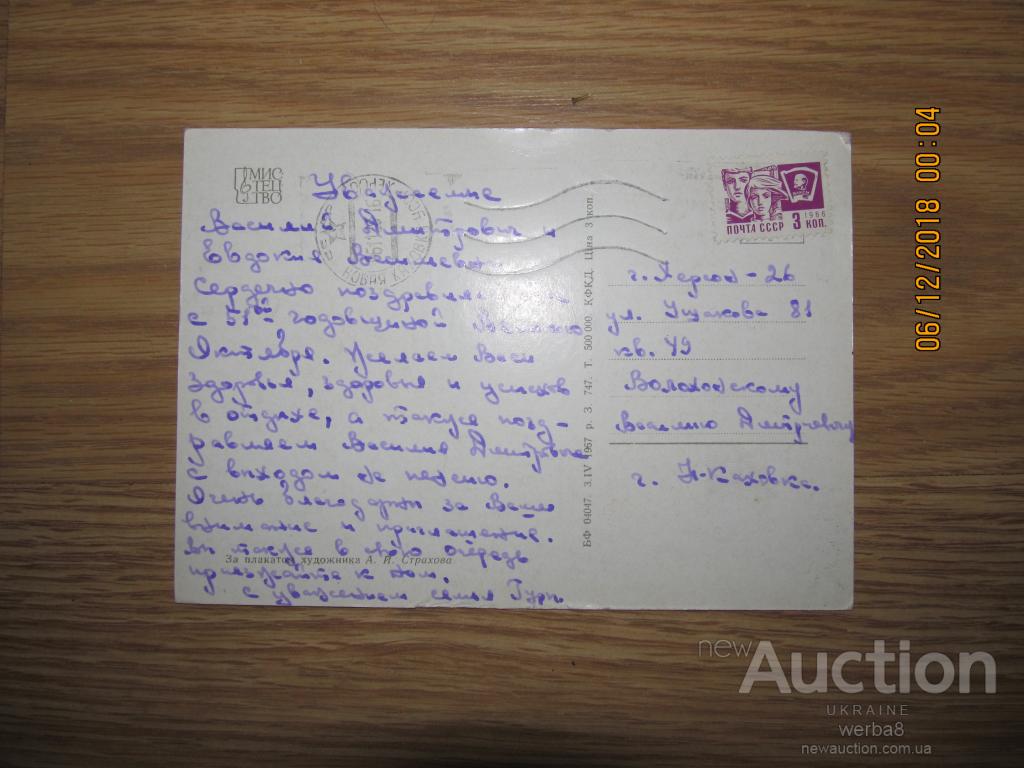 МИС
ТЕЦ
ТВО
Уважаемые
Василий Дмитрович и
Евдокия Васильевна
Сердечно поздравля
с 51ой годовщиной
Октября. Желаем Вам
здоровья, здоровья и успехов
в отдыхе, а также позд-
равляем Василия Дмитровича
с выходом на пенсию.
Очень благодарны за Ваше
внимание и приглашение.
Вы также в свою очередь
приезжайте к нам.
с уважением семья
За плакатом художника А. И. Страхова
БФ 04047. 3.IV 1967 р. З. 747. Т. 500 000. КФКД. Ціна 3 коп.
ПОЧТА СССР 3 КОП.
1966
г. Херсон-26
ул. Ушакова 81
кв. 49
Волоховскому
Василию Дмитриевичу
г. Н-Каховка.
06/12/2018 00:04
new Auction
UKRAINE
werba8
newauction.com.ua